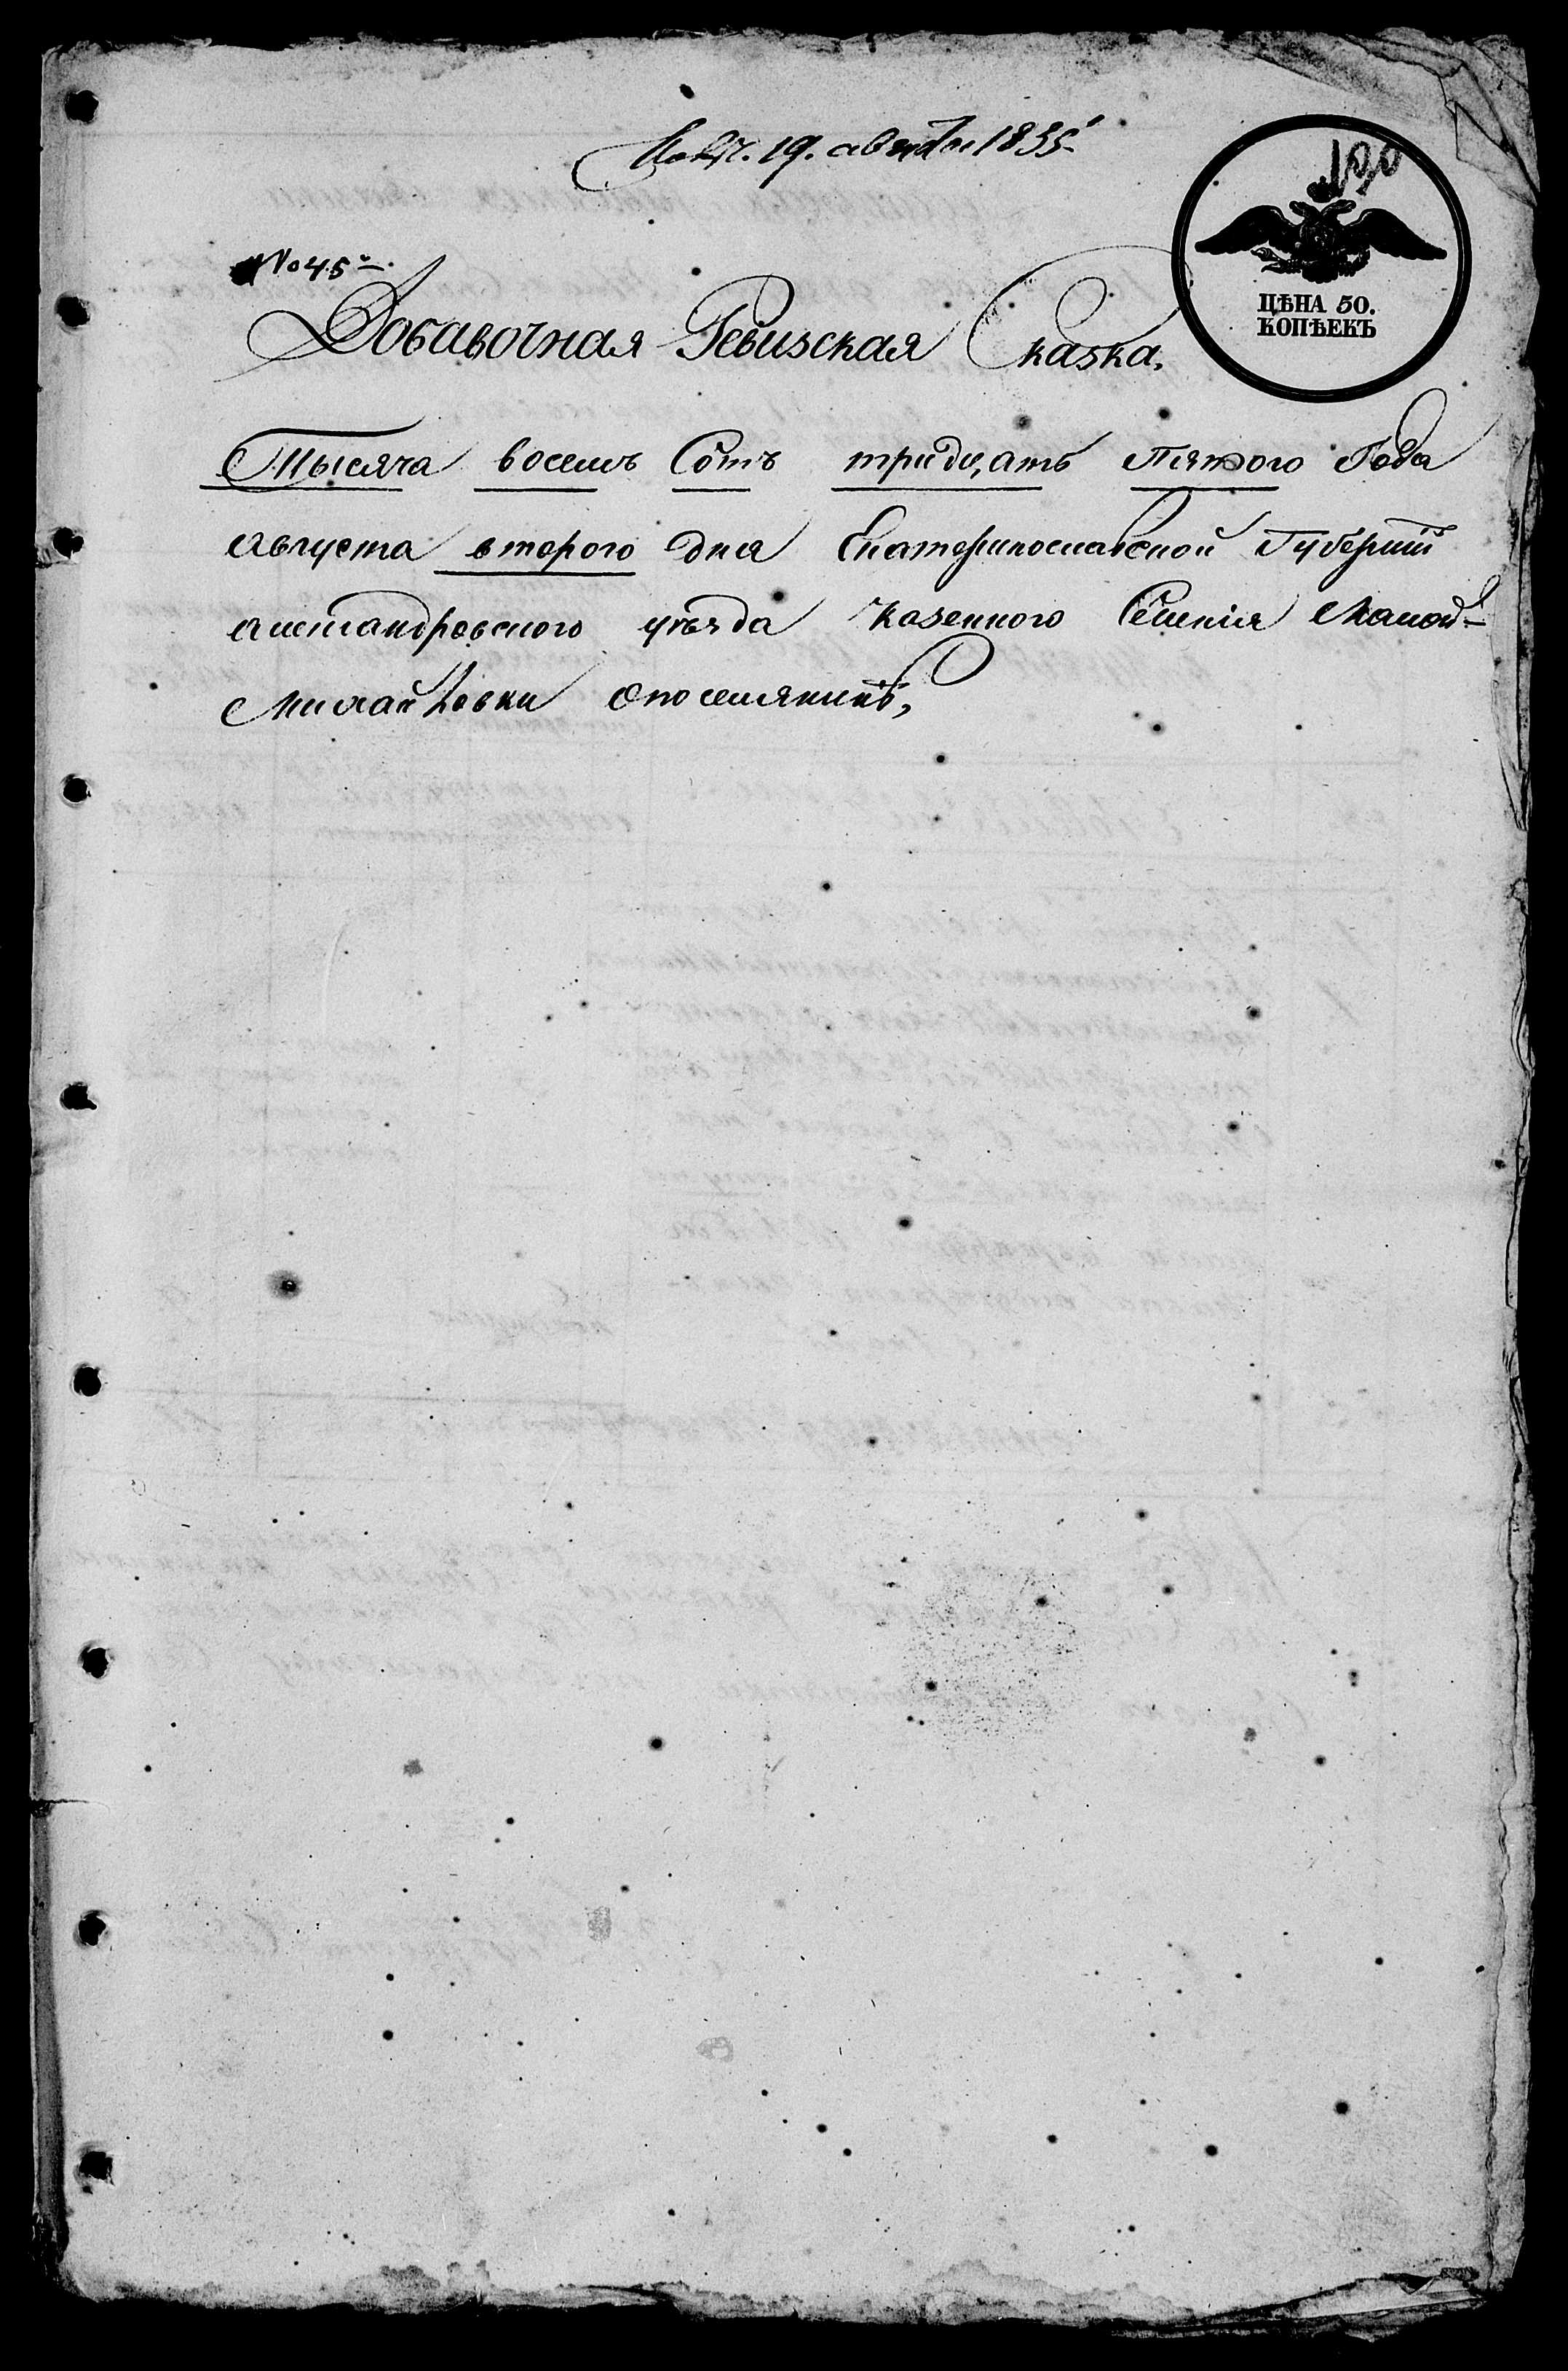 Пол. 19. августа 1835
130
№ 45
ЦѢНА 50.
КОПѢЕКЪ
Добавочная Ревизская Сказка,
Тысяча восемь Сотъ тридцать Пятого Года
Августа второго дня Екатеринославской Губерніи
Александровского уѣзда Казенного Селенія Малой-
Михайловки опоселянинѣ,